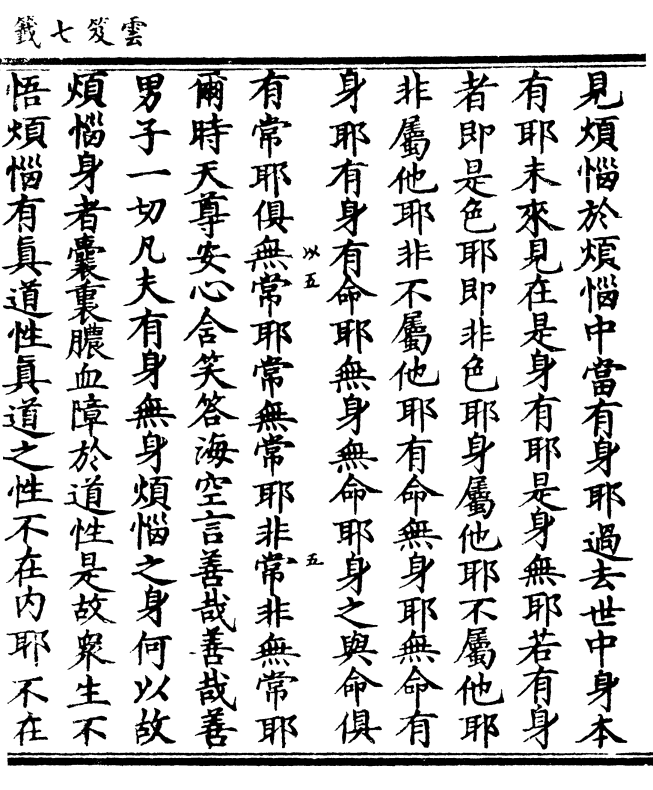 雲笈七籤
見煩惱於煩惱中當有身耶過去世中身本
有耶未來見在是身有耶是身無耶若有身
者即是色耶即非色耶身屬他耶不屬他耶
非屬他耶非不屬他耶有命無身耶無命有
身耶有身有命耶無身無命耶身之與命俱
以五
五
有常耶俱無常耶常無常耶非常非無常耶
爾時天尊安心含笑答海空言善哉善哉善
男子一切凡夫有身無身煩惱之身何以故
煩惱身者囊裏膿血障於道性是故衆生不
悟煩惱有眞道性眞道之性不在内耶不在